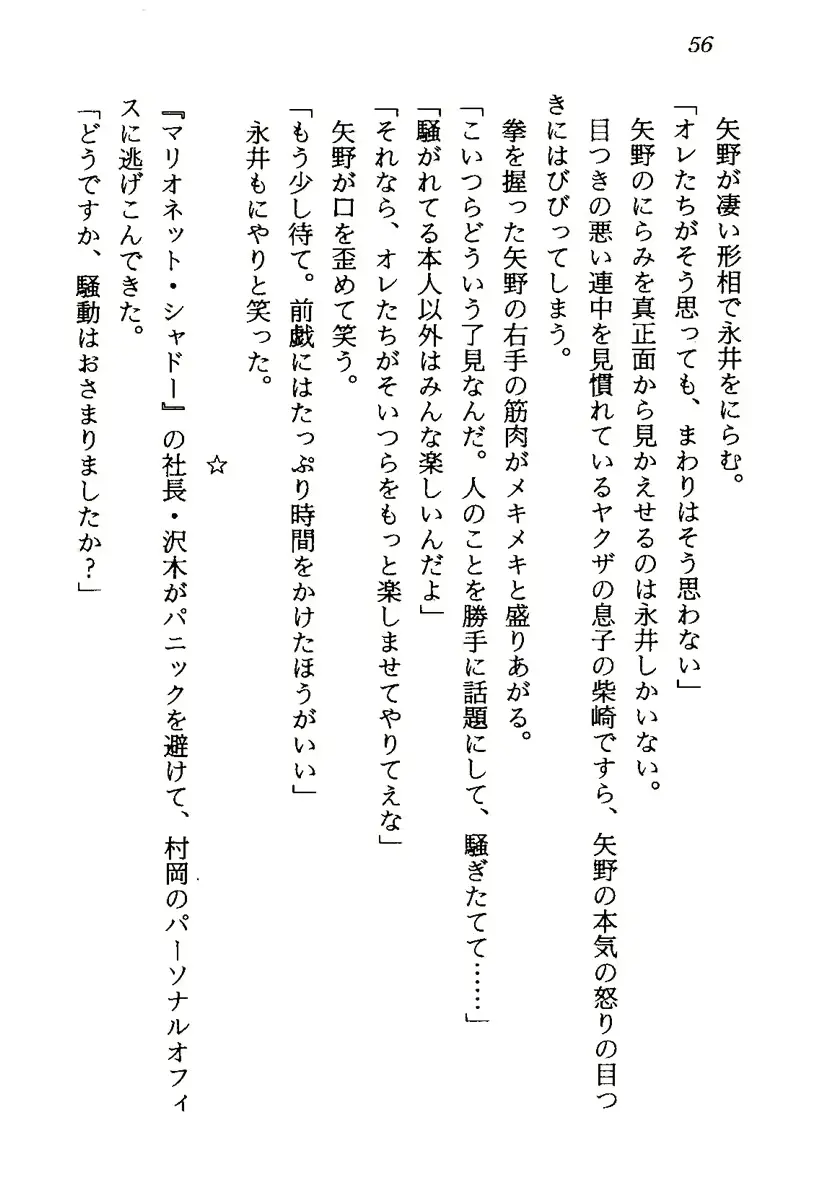 56
矢野が凄い形相で永井をにらむ。
「オレたちがそう思っても、まわりはそう思わない」
矢野のにらみを真正面から見かえせるのは永井しかいない。
目つきの悪い連中を見慣れているヤクザの息子の柴崎ですら、矢野の本気の怒りの目つ
きにはびびってしまう。
拳を握った矢野の右手の筋肉がメキメキと盛りあがる。
「こいつらどういう了見なんだ。人のことを勝手に話題にして、騒ぎたてて……」
「騒がれてる本人以外はみんな楽しいんだよ」
「それなら、オレたちがそいつらをもっと楽しませてやりてえな」
矢野が口を歪めて笑う。
「もう少し待て。前戯にはたっぷり時間をかけたほうがいい」
永井もにやりと笑った。
☆
『マリオネット・シャドー』の社長・沢木がパニックを避けて、村岡のパーソナルオフィ
スに逃げこんできた。
「どうですか、騒動はおさまりましたか?」